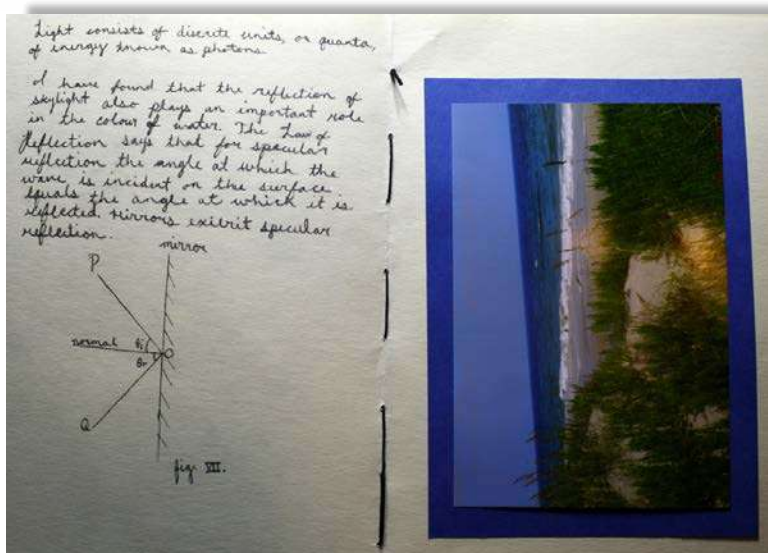 Light consists of discrete units, or quanta,
of energy known as photons
I have found that the reflection of
skylight also plays an important role
in the colour of water. The Law of
Reflection says that for specular
reflection the angle at which the
wave is incident on the surface
equals the angle at which it is
reflected. Mirrors exibrit specular
reflection.
mirror
P
normal θi
O
θr
Q
fig. VII.